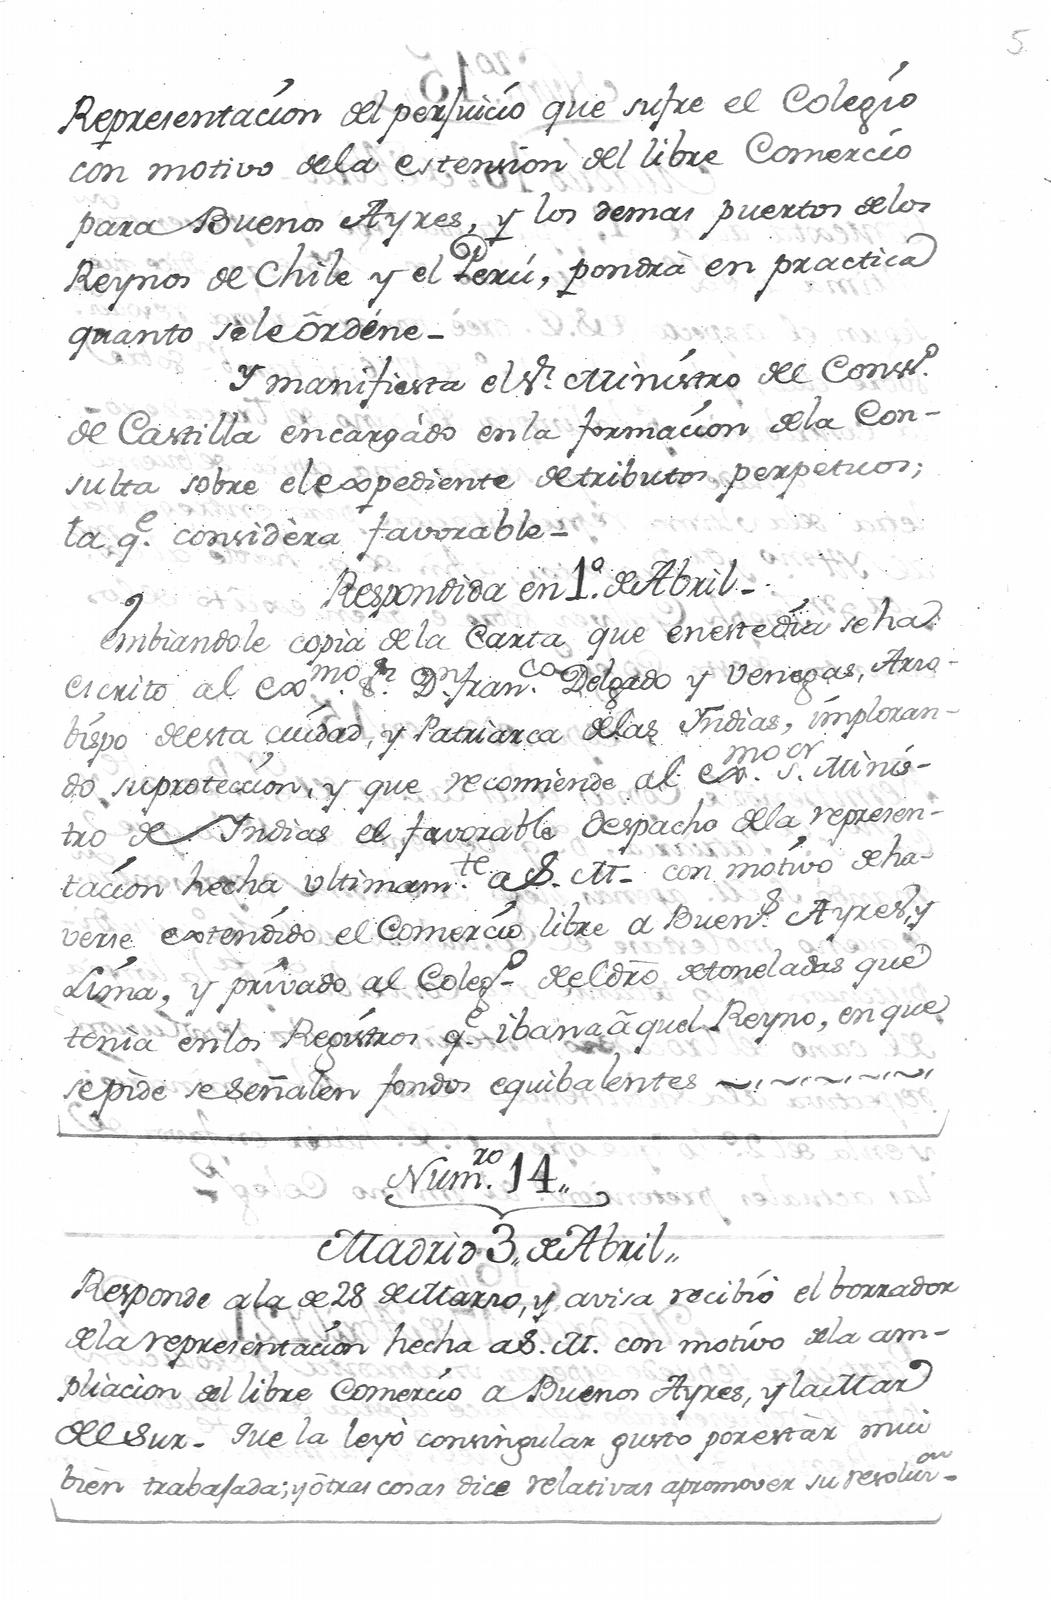 5
Representacíon del perjuício que sufre el Colegío
con motivo dela estension del libre Comercío
para Buenos Ayres, y los demas puertos delos
Reynos de Chile y el Perú, pondrà en practica
quanto sele ôrdéne_
Y manifiesta el Sr. Minístro del Conso.
de Castilla encargàdo enla formacíon dela Con-
sulta sobre el expediente detributos perpetuos;
la qe. considèra favorable_
Respondida en 1º. de Abril_
Embiandole copia dela Carta que enestedía seha
escrito al Exmo. Sr. Dn. Franco. Delgado y Venegas, Arzo-
bíspo deesta ciúdad, y Patriarca delas Indias, ímploran-
do suproteccíon, y que recomiende al Exmo. Sr. Minis-
tro de Indias el favorable despacho dela represen-
tacíon hecha ultimamte. a S. M. con motívo deha-
verse extendído el Comercío libre a Buens. Ayres, y
Líma, y prívado al Colego. del dro detoneladas que
tenia enlos Regístros qe. iban a aquel Reyno, en que
sepide se señalen fondos equibalentes
Numro. 14„
Madrid 3„ de Abril„
Responde ala de 28 de Marzo, y avisa recibió el borrador
dela representacíon hecha a S. M. con motívo dela am-
pliacion del libre Comercío a Buenos Ayres, y la Mar
del Sur_ Que la leyò consingular gusto por estàr mui
bien trabajada; y ôtras cosas dice relativas apromover su resoluon_